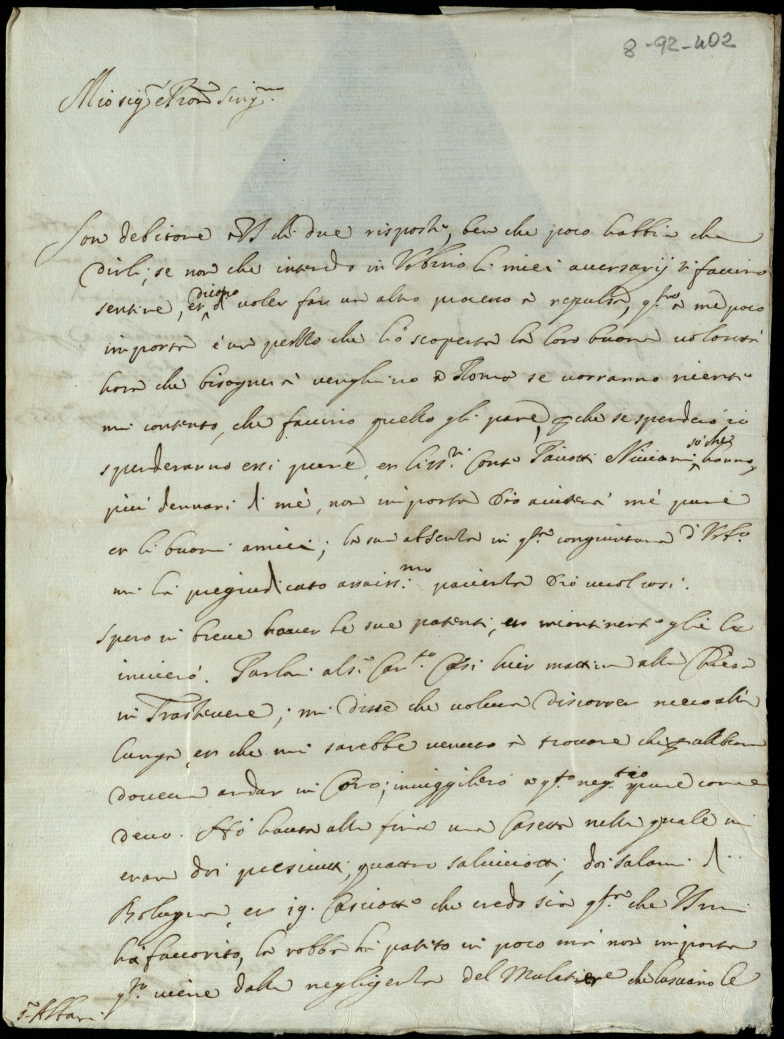 8-92-402
Mio sig.r e Pron Sing.mo
Son debitore a VS di due risposte, ben che poco habbia che
dirli, se non che intendo in Urbino li miei aversarij si faccino
sentire, et dicono voler far un altro processo a repulsa, q.to a me poco
importa è un pezzo che hò scoperta la loro buona volontà
hora che bisognerà venghino a Roma se vorranno niente
mi contento, che faccino quello gli pare, che se spenderò io
spenderanno essi pure, et li ss.ri Conte Paciotti e Viviani, sò che hanno
più dennari di mè, non importa Dio aiuterà mè pure
et li buoni amici; la sua absenza in q.ta congiuntura d'Urb.o
mi hà pregiudicato assaiss.mo pacienza Dio vuol così.
Spero in breve haver le sue patenti, et incontinente gliè le
invierò. Parlai al s. hier mattina alla Chiesa
in Trastevere; mi disse che voleva discorrer meco alla
lunga, et che mi sarebbe venuto à trovare che allhora
doveva andar in Coro; invigilerò a q.to neg.tio pure come
devo. Hò hauta alla fine una Casetta nella quale vi
eran doi presciutti, quattro salsicciotti, doi salami di
Bologna, et 19. Casciotte che credo sia q.ta che VS mi
hà favorito, la robba hà patito un poco mà non importa
q.to viene dalla negligenza del Mulatiere che lasciano le